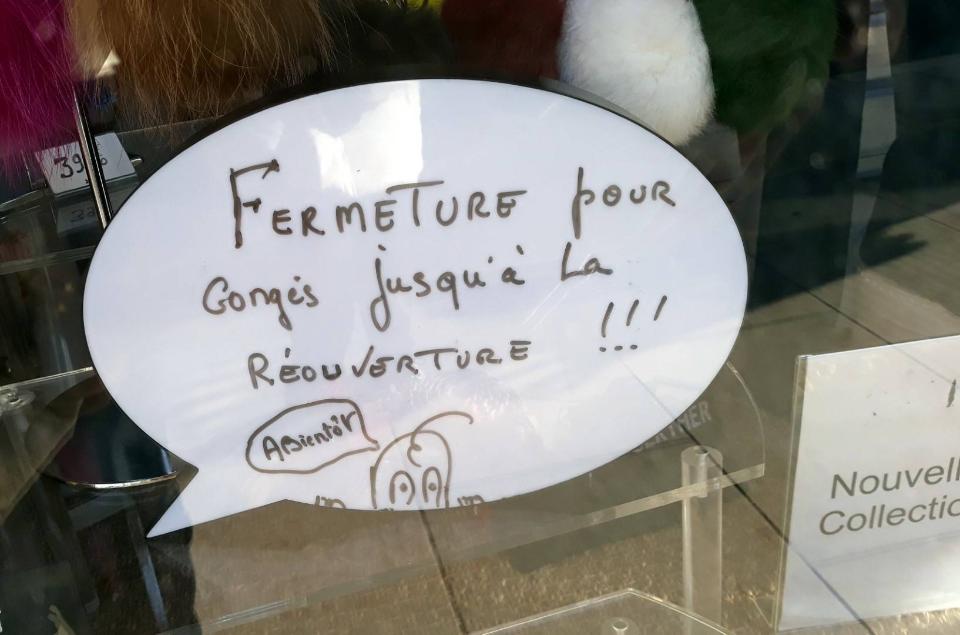 39
FERMETURE POUR
Congés jusqu'à La
RÉOUVERTURE !!!
ABientôt
Nouvell
Collectio